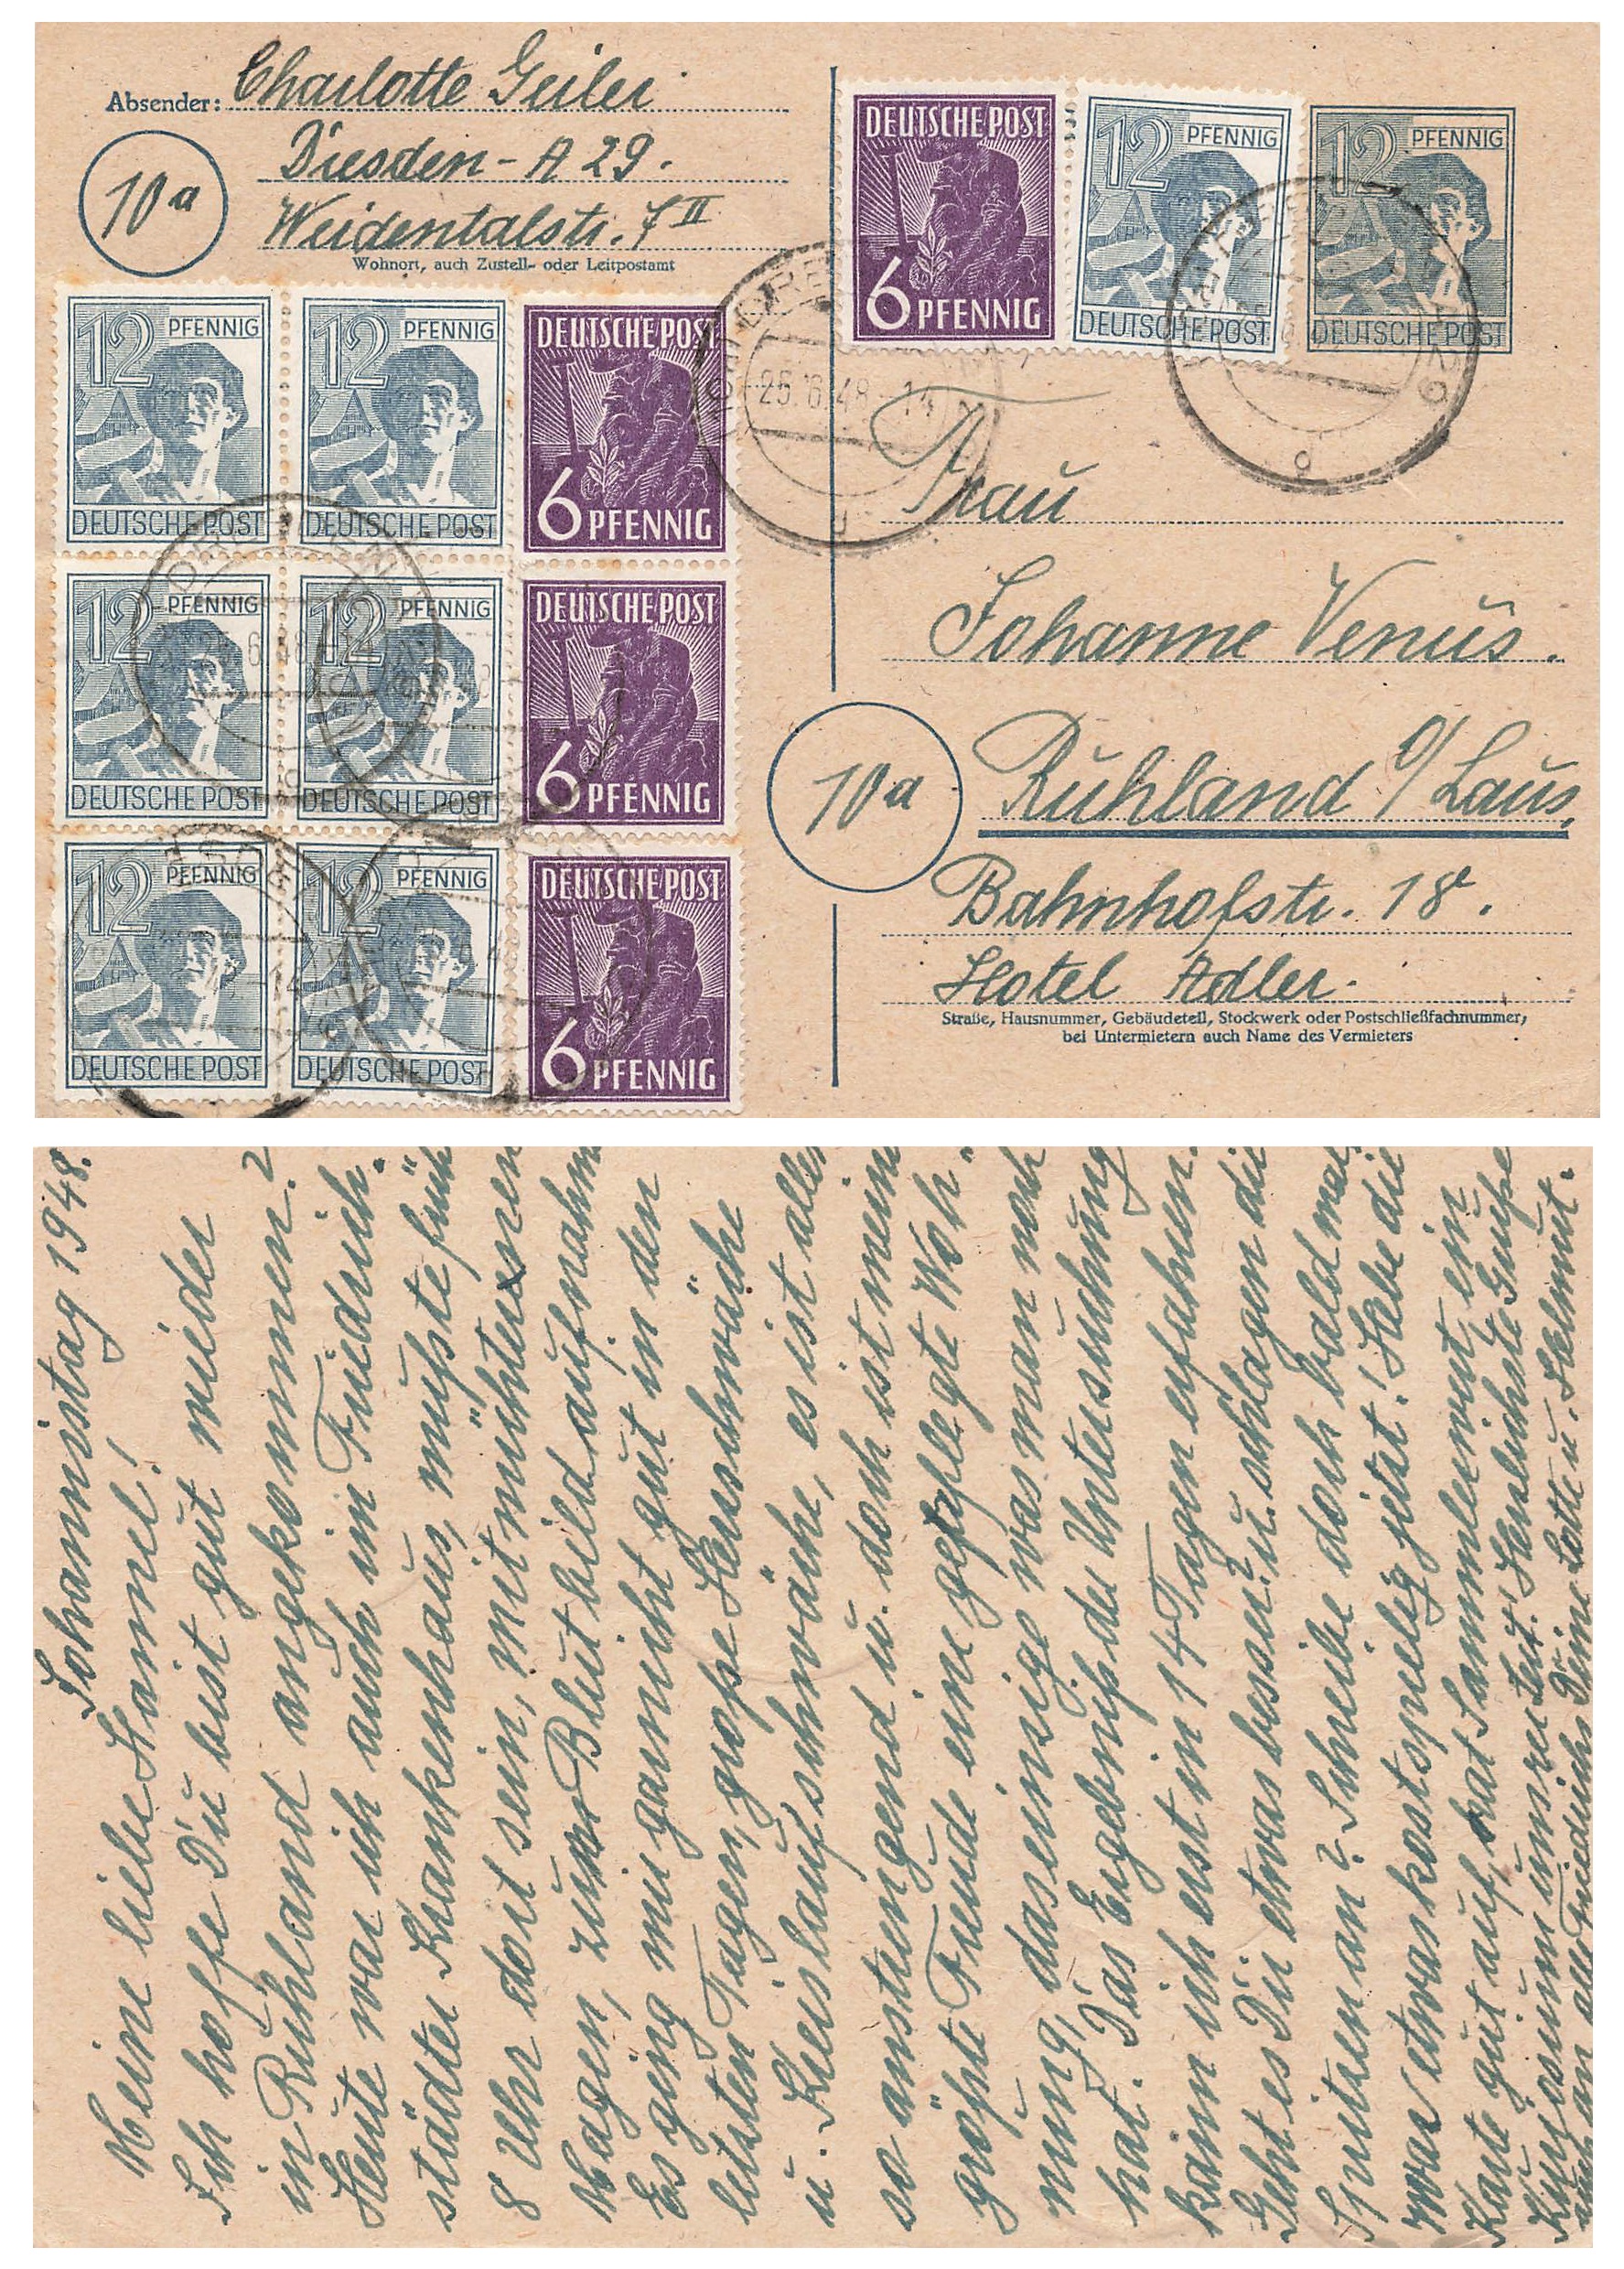 Absender: Charlotte Geiler
Dresden-A 29.
Weidentalstr. 7 II
Wohnort, auch Zustell- oder Leitpostamt
10a
DEUTSCHE POST
6 PFENNIG
12 PFENNIG
DEUTSCHE POST
12 PFENNIG
DEUTSCHE POST
12 PFENNIG
DEUTSCHE POST
12 PFENNIG
DEUTSCHE POST
DEUTSCHE POST
6 PFENNIG
12 PFENNIG
DEUTSCHE POST
12 PFENNIG
DEUTSCHE POST
DEUTSCHE POST
6 PFENNIG
12 PFENNIG
DEUTSCHE POST
12 PFENNIG
DEUTSCHE POST
DEUTSCHE POST
6 PFENNIG
25.6.48-14
Frau
Johanne Venus.
10a
Ruhland O/Laus.
Bahnhofstr. 18.
Hotel Adler.
Straße, Hausnummer, Gebäudeteil, Stockwerk oder Postschließfachnummer,
bei Untermietern auch Name des Vermieters
Johannistag 1948.
Meine liebe Hannel!
Ich hoffe Du bist gut wieder
in Ruhland angekommen?
Heute war ich auch im Friedrich-
städter Krankenhaus, mußte früh
8 Uhr dort sein, mit nüchternen
Magen, zur Blutbildaufnahm
Es ging mir garnicht gut in den
letzten Tagen, große Herzschwäche
u. Kreislaufschwäche, es ist alles
so anstrengend u. doch ist mein
größte Freude eine gepflegte Woh-
nung, das einzige was man noch
hat. Das Ergebniß der Untersuchung
kann ich erst in 14 Tagen erfahren.
Geht es Dir etwas besser? u. schlagen die
Spritzen an? Schreibe doch bald mal
was etwas kostspielig jetzt! Hebe die
Karte gut auf, hat Sammlerwert, ein
Kuriosum unsrer Zeit! Herzlichste Grüße
auch an alle Friedrichs Deine Lotte u. Helmut.